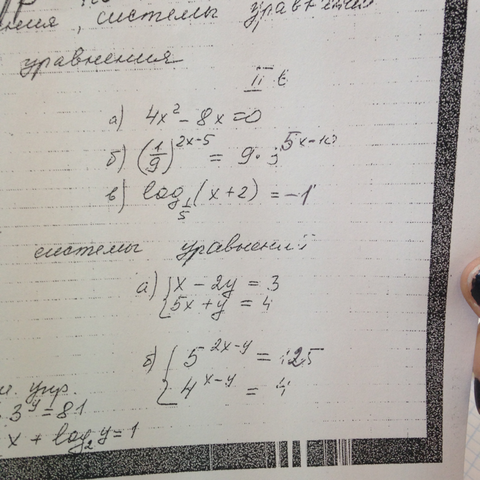 системы уравнений
уравнения
II в
а) 4x² - 8x = 0
б) (1/9)^(2x-5) = 9·3^(5x-10)
в) log_(1/5) (x+2) = -1
системы уравнений
а) { x - 2y = 3
5x + y = 4
б) { 5^(2x-y) = 125
4^(x-y) = 4
упр.
3^y = 81
x + log₂y = 1